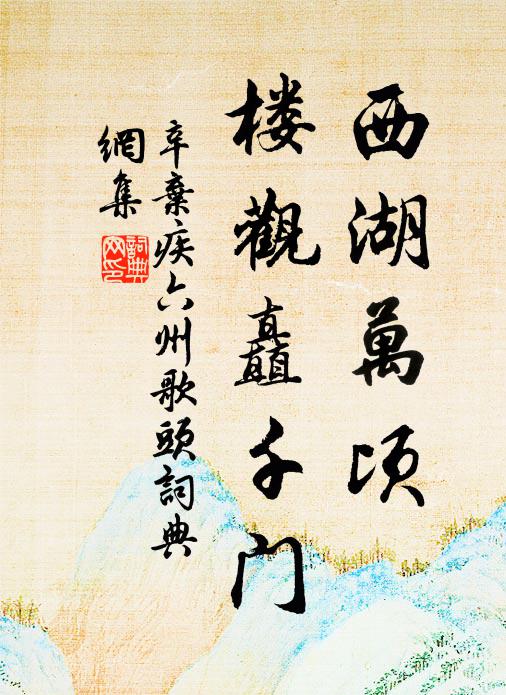 西湖萬頃
楼觀矗千門
辛棄疾六州歌頭詞典
網集
詞典网印